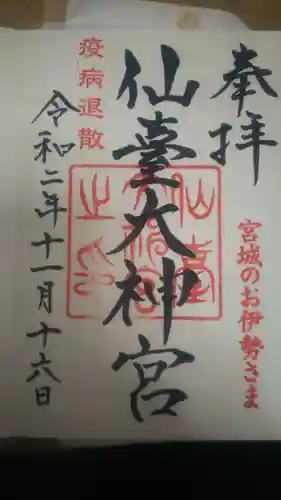 奉拝
宮城のお伊勢さま
仙臺大神宮
疫病退散
令和二年十一月十六日